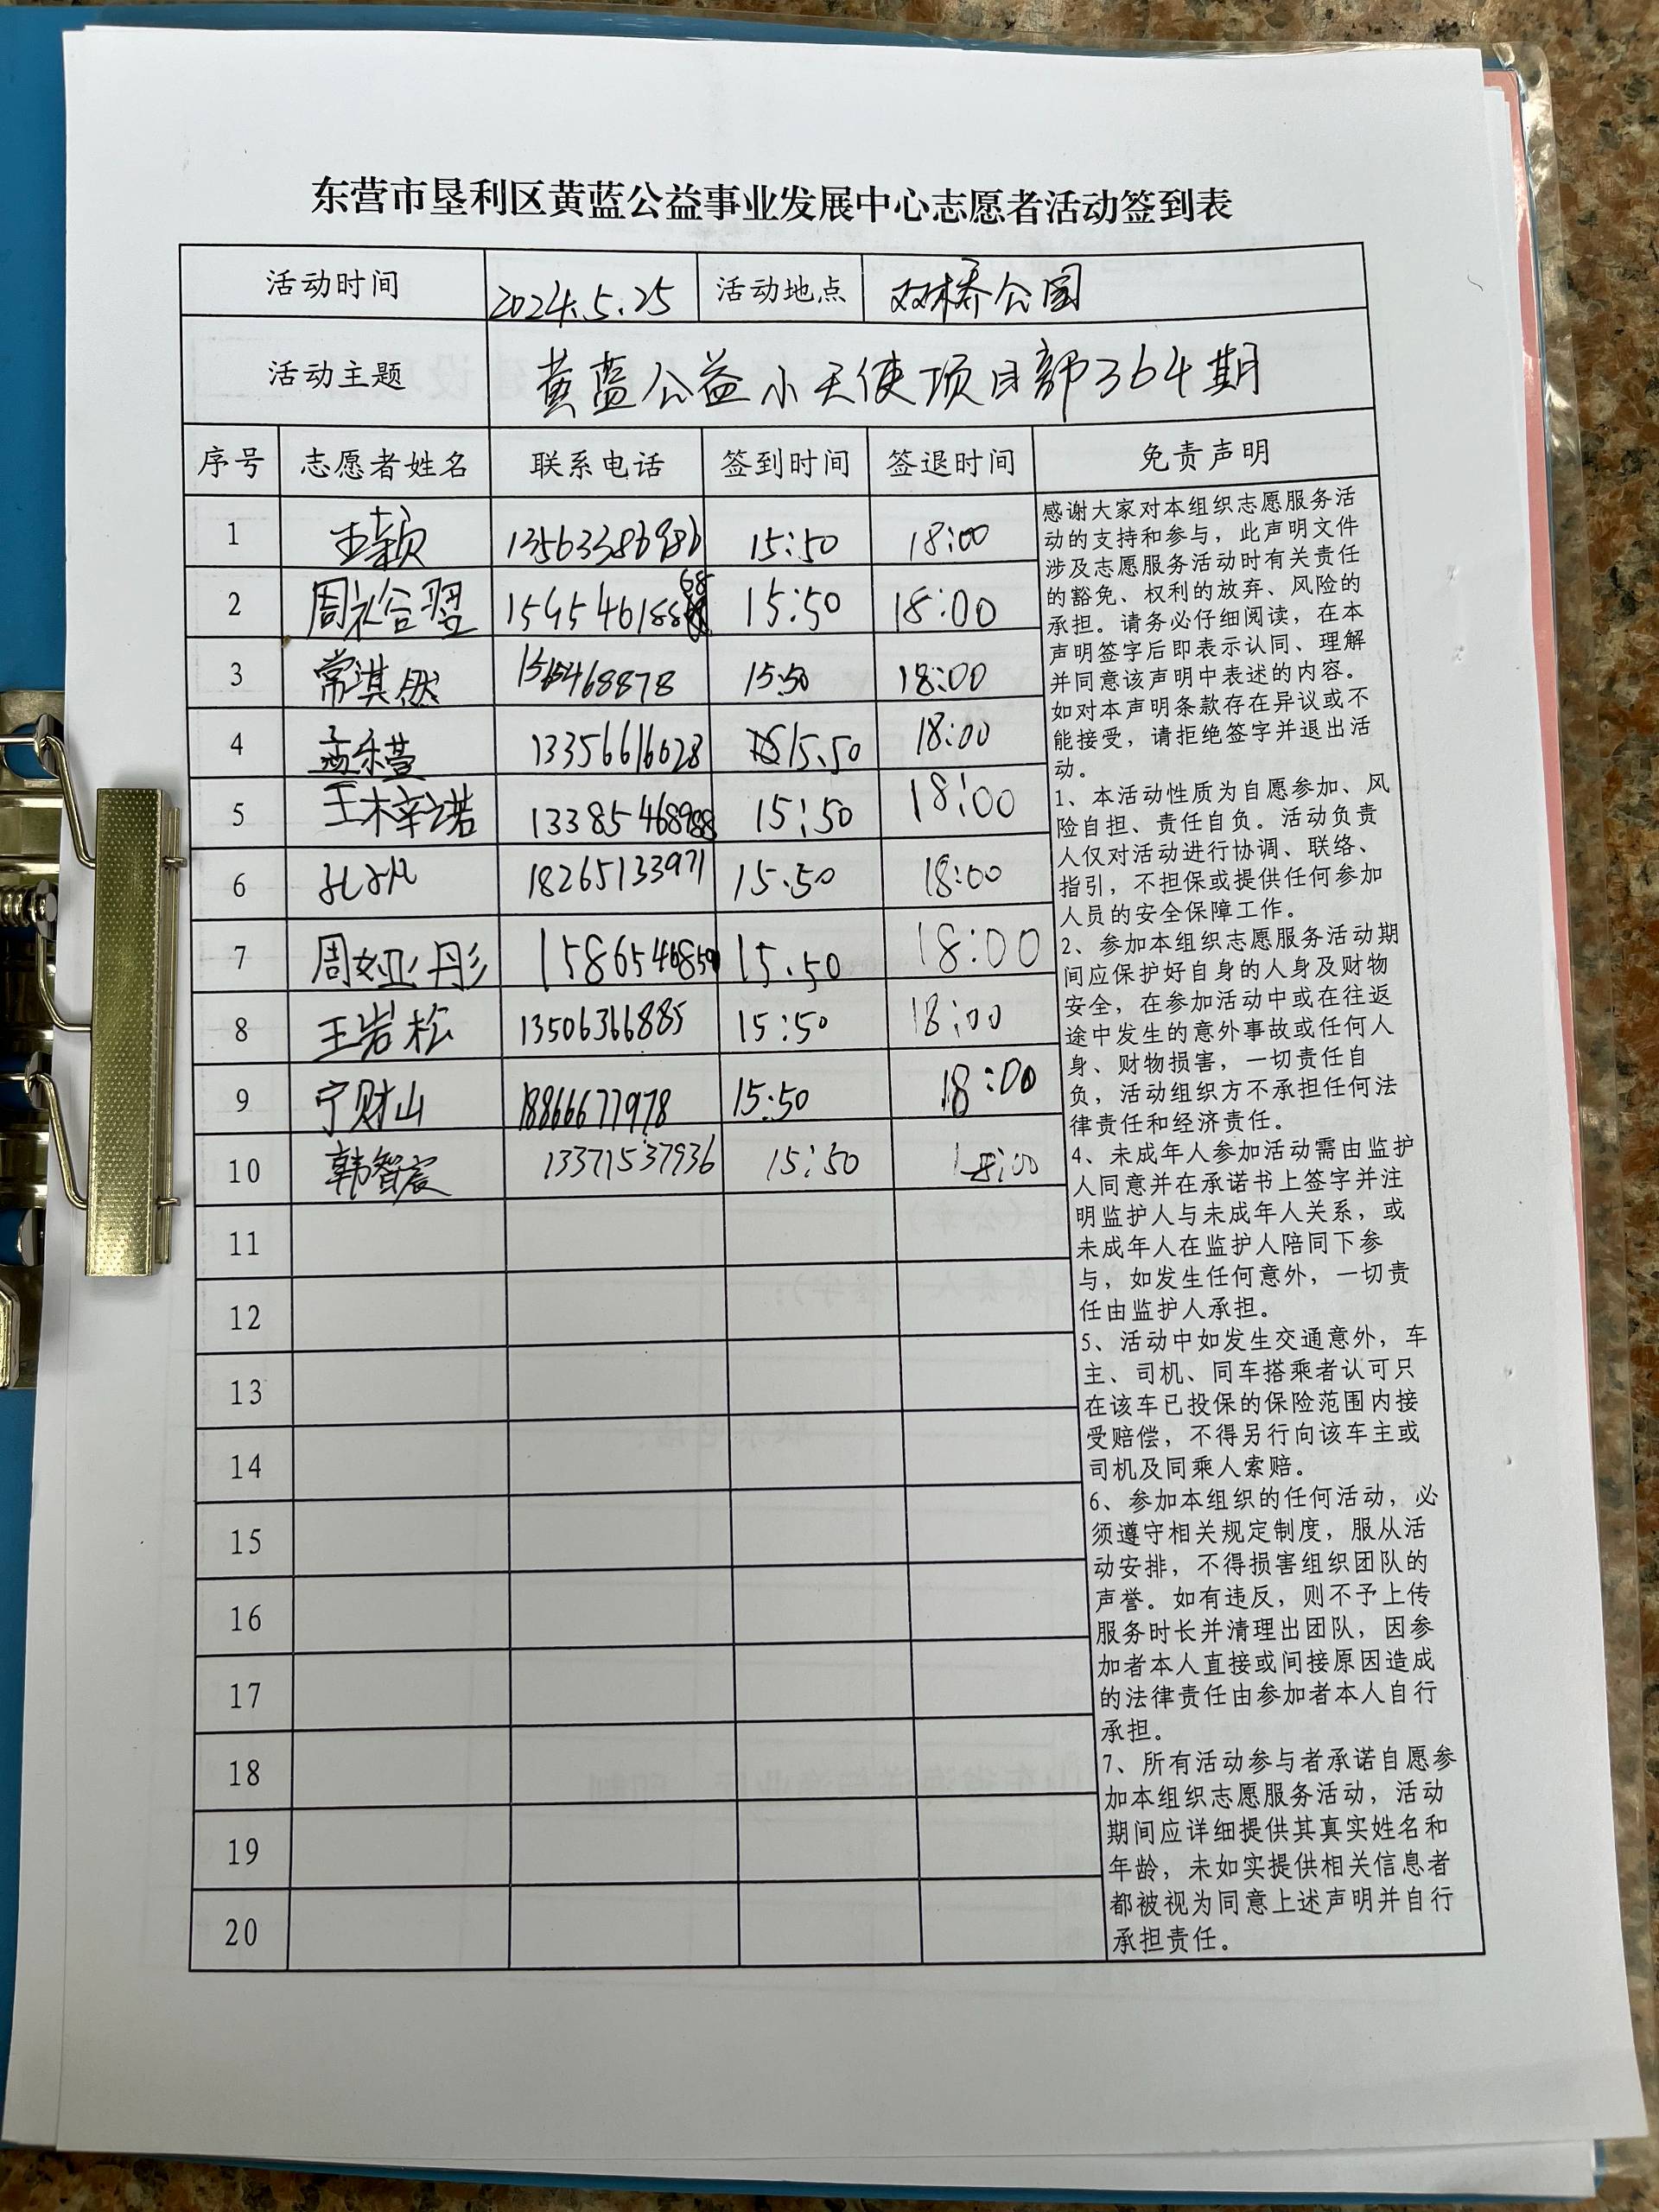 东营市垦利区黄蓝公益事业发展中心志愿者活动签到表
活动时间 2024.5.25 活动地点 双桥公园
活动主题 黄蓝公益小天使项目部364期
序号 志愿者姓名 联系电话 签到时间 签退时间 免责声明
1 王颖 13563386986 15:50 18:00
2 周裕翌 15:50 18:00
3 常淇 15:50 18:00
4 孟乐萱 13356616028 15.50 18:00
5 王梓诺 13385468988 15:50 18:00
6 孔凡 18265133971 15.50 18:00
7 周娅彤 15.50 18:00
8 王岩松 13506366885 15:50 18:00
9 宁财山 18866677978 15:50 18:00
10 韩智宸 13371537936 15:50 18:00
11
12
13
14
15
16
17
18
19
20
感谢大家对本组织志愿服务活
动的支持和参与，此声明文件
涉及志愿服务活动时有关责任
的豁免、权利的放弃、风险的
承担。请务必仔细阅读，在本
声明签字后即表示认同、理解
并同意该声明中表述的内容。
如对本声明条款存在异议或不
能接受，请拒绝签字并退出活
动。
1、本活动性质为自愿参加、风
险自担、责任自负。活动负责
人仅对活动进行协调、联络、
指引，不担保或提供任何参加
人员的安全保障工作。
2、参加本组织志愿服务活动期
间应保护好自身的人身及财物
安全，在参加活动中或在往返
途中发生的意外事故或任何人
身、财物损害，一切责任自
负，活动组织方不承担任何法
律责任和经济责任。
4、未成年人参加活动需由监护
人同意并在承诺书上签字并注
明监护人与未成年人关系，或
未成年人在监护人陪同下参
与，如发生任何意外，一切责
任由监护人承担。
5、活动中如发生交通意外，车
主、司机、同车搭乘者认可只
在该车已投保的保险范围内接
受赔偿，不得另行向该车主或
司机及同乘人索赔。
6、参加本组织的任何活动，必
须遵守相关规定制度，服从活
动安排，不得损害组织团队的
声誉。如有违反，则不予上传
服务时长并清理出团队，因参
加者本人直接或间接原因造成
的法律责任由参加者本人自行
承担。
7、所有活动参与者承诺自愿参
加本组织志愿服务活动，活动
期间应详细提供其真实姓名和
年龄，未如实提供相关信息者
都被视为同意上述声明并自行
承担责任。